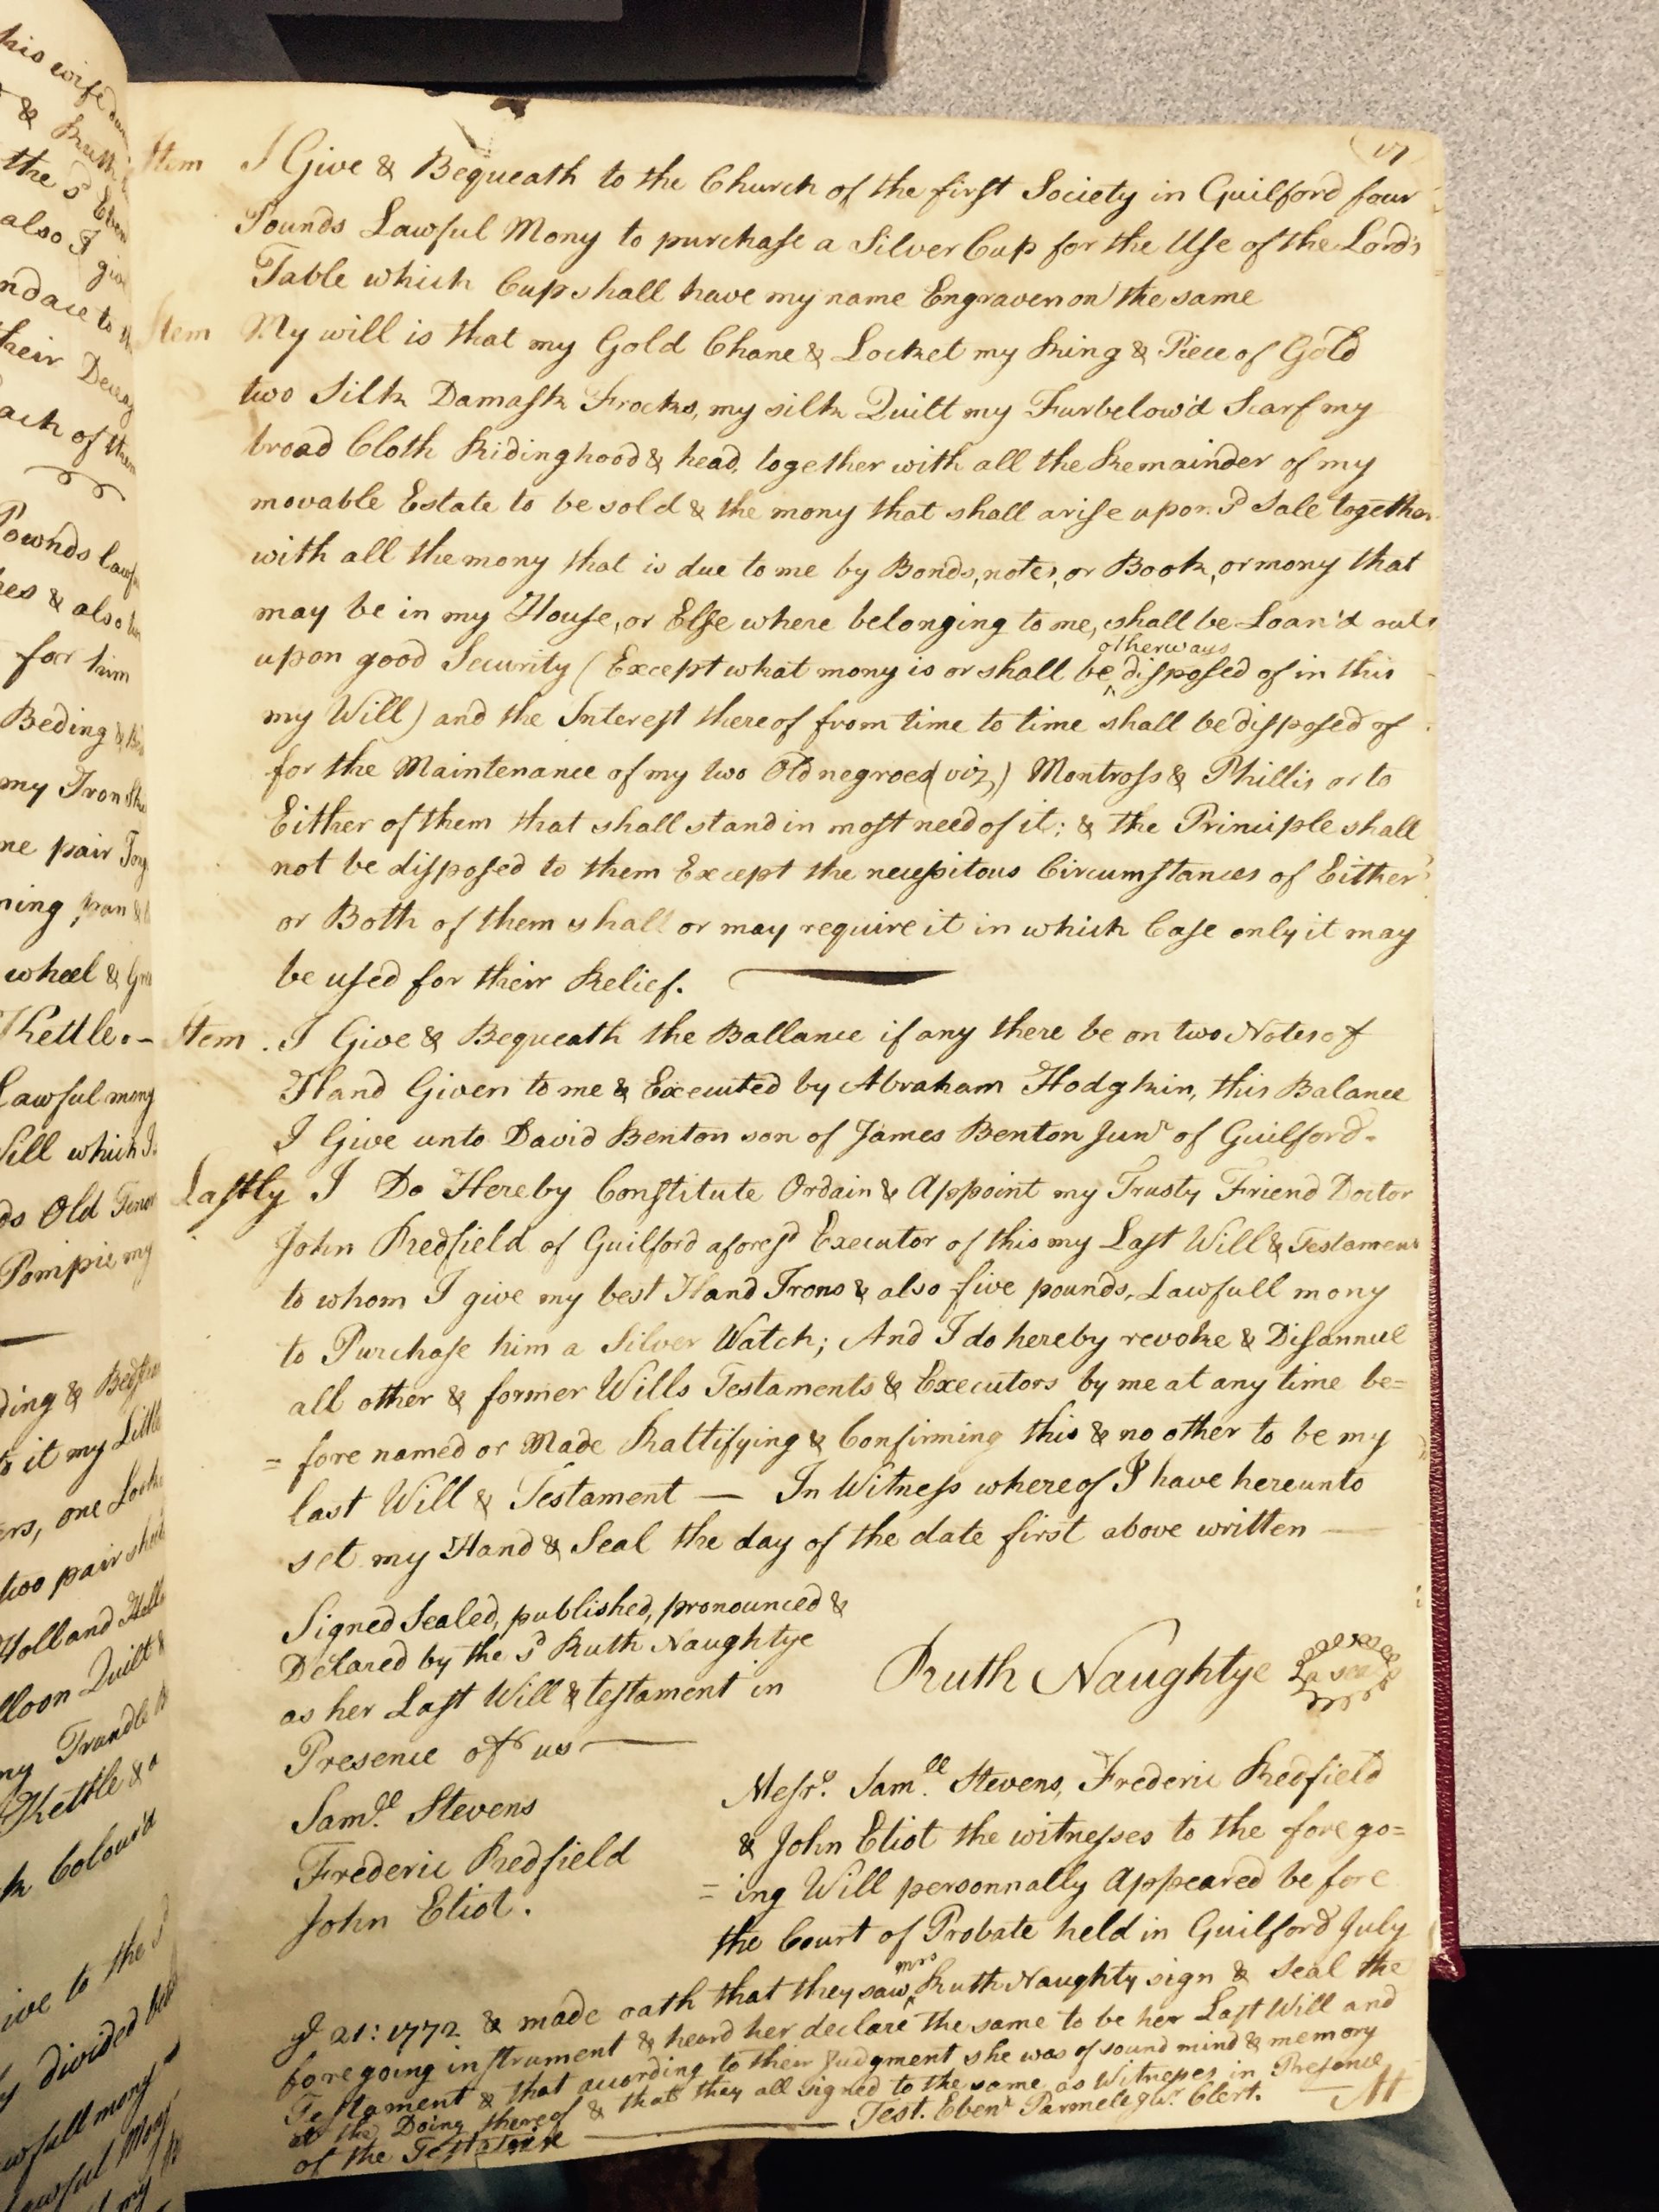 his wife
& Ruth
the sd Eben
also I give
their
ach of them
Pownds lawf
& also
for him
Beding &
my Iron
ne pair
ning pan &
wheel &
Kettle. -
Lawful mony
Will which I
ds Old Tenor
Pompie my
ding &
to it my Little
ers, one
two pair
Holland
lloon Quilt &
my Trundle
Kettle & a
k Colour'd
ive to the sd
y divided
wfull mony
17
Item I Give & Bequeath to the Church of the first Society in Guilford four
Pounds Lawful Mony to purchase a Silver Cup for the Use of the Lord's
Table which Cup shall have my name Engraven on the same
Item My will is that my Gold Chane & Locket my Ring & Piece of Gold
two Silk Damask Frocks, my silk Quilt my Furbelow'd Scarf my
broad Cloth Ridinghood & head, together with all the Remainder of my
movable Estate to be sold & the mony that shall arise upon sd Sale together
with all the mony that is due to me by Bonds, notes, or Book, or mony that
may be in my House, or Else where belonging to me, shall be Loan'd out
upon good Security (Except what mony is or shall be otherways disposed of in this
my Will) and the Interest thereof from time to time shall be disposed of
for the Maintenance of my two Old negroes (viz) Montross & Phillis or to
Either of them that shall stand in most need of it; & the Principle shall
not be disposed to them Except the necessitous Circumstances of Either
or Both of them shall or may require it in which Case only it may
be used for their Relief.
Item. I Give & Bequeath the Ballance if any there be on two Notes of
Hand Given to me & Executed by Abraham Hodgkin, this Balance
I Give unto David Benton son of James Benton Junr of Guilford-
Lastly I Do Hereby Constitute Ordain & Appoint my Trusty Friend Doctor
John Redfield of Guilford aforesd Executor of this my Last Will & Testament
to whom I give my best Hand Irons & also five pounds, Lawfull mony
to Purchase him a Silver Watch; And I do hereby revoke & Disannul
all other & former Wills Testaments & Executors by me at any time be=
= fore named or Made Rattifying & Confirming this & no other to be my
last Will & Testament — In Witness whereof I have hereunto
set my Hand & Seal the day of the date first above written —
Signed Sealed, published, pronounced &
Delared by the sd Ruth Naughtye
as her Last Will & testament in
Presence of us —
Samll Stevens
Frederic Redfield
John Eliot.
Ruth Naughtye a seal
Messrs. Samll. Stevens, Frederic Redfield
& John Eliot the witnesses to the fore go=
= ing Will personnally Appeared before
the Court of Probate held in Guilford July
ye 21: 1772 & made oath that they saw mrs Ruth Naughty sign & Seal the
foregoing instrument & heard her declare the same to be her Last Will and
Testament & that according to their Judgment she was of sound mind & memory
at the Doing thereof & that they all signed to the same as Witnesses in Presence
of the Testatrix — Test. Ebenr Parmele Clert.